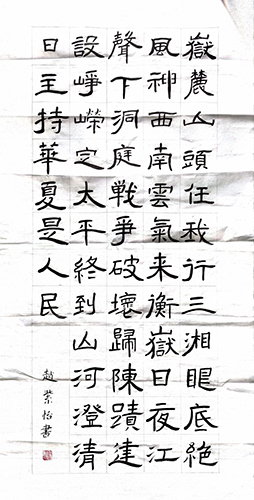 嶽麓山頭任我行三湘眼底絶
風神西南雲氣来衡嶽日夜江
聲下洞庭戰爭破壞歸陳蹟建
設崢嶸定太平終到山河澄清
日主持華夏是人民
趙業怡書